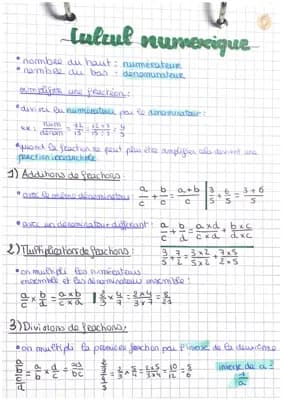 Calcul numérique
• nombre du haut : numérateur
• nombre du bas : dénominateur
simplifier une fraction :
• diviser le numérateur par le dénominateur :
ex : num/dénom = 12/15 = 12÷3/15÷3 = 4/5
• quand la fraction ne peut plus être simplifiée elle devient une
fraction irréductible
1) Additions de fractions :
• avec le même dénominateur : a/c + b/c = a+b/c | 3/5 + 6/5 = 3+6/5
• avec un dénominateur différent : a/c + b/d = a×d/c×d + b×c/d×c
2) Multiplication de fractions : 3/5 + 7/2 = 3×2/5×2 + 7×5/2×5
• on multiplie les numérateurs
ensemble et les dénominateurs ensemble :
a/c × b/d = a×b/c×d | 2/3 × 4/7 = 2×4/3×7 = 8/21
3) Divisions de fractions :
• on multiplie la première fraction par l'inverse de la deuxième
= a/b × d/c = ad/bc = 2/3 × 5/4 = 2×5/3×4 = 10/12 = 5/6
inverse de a :
1/a